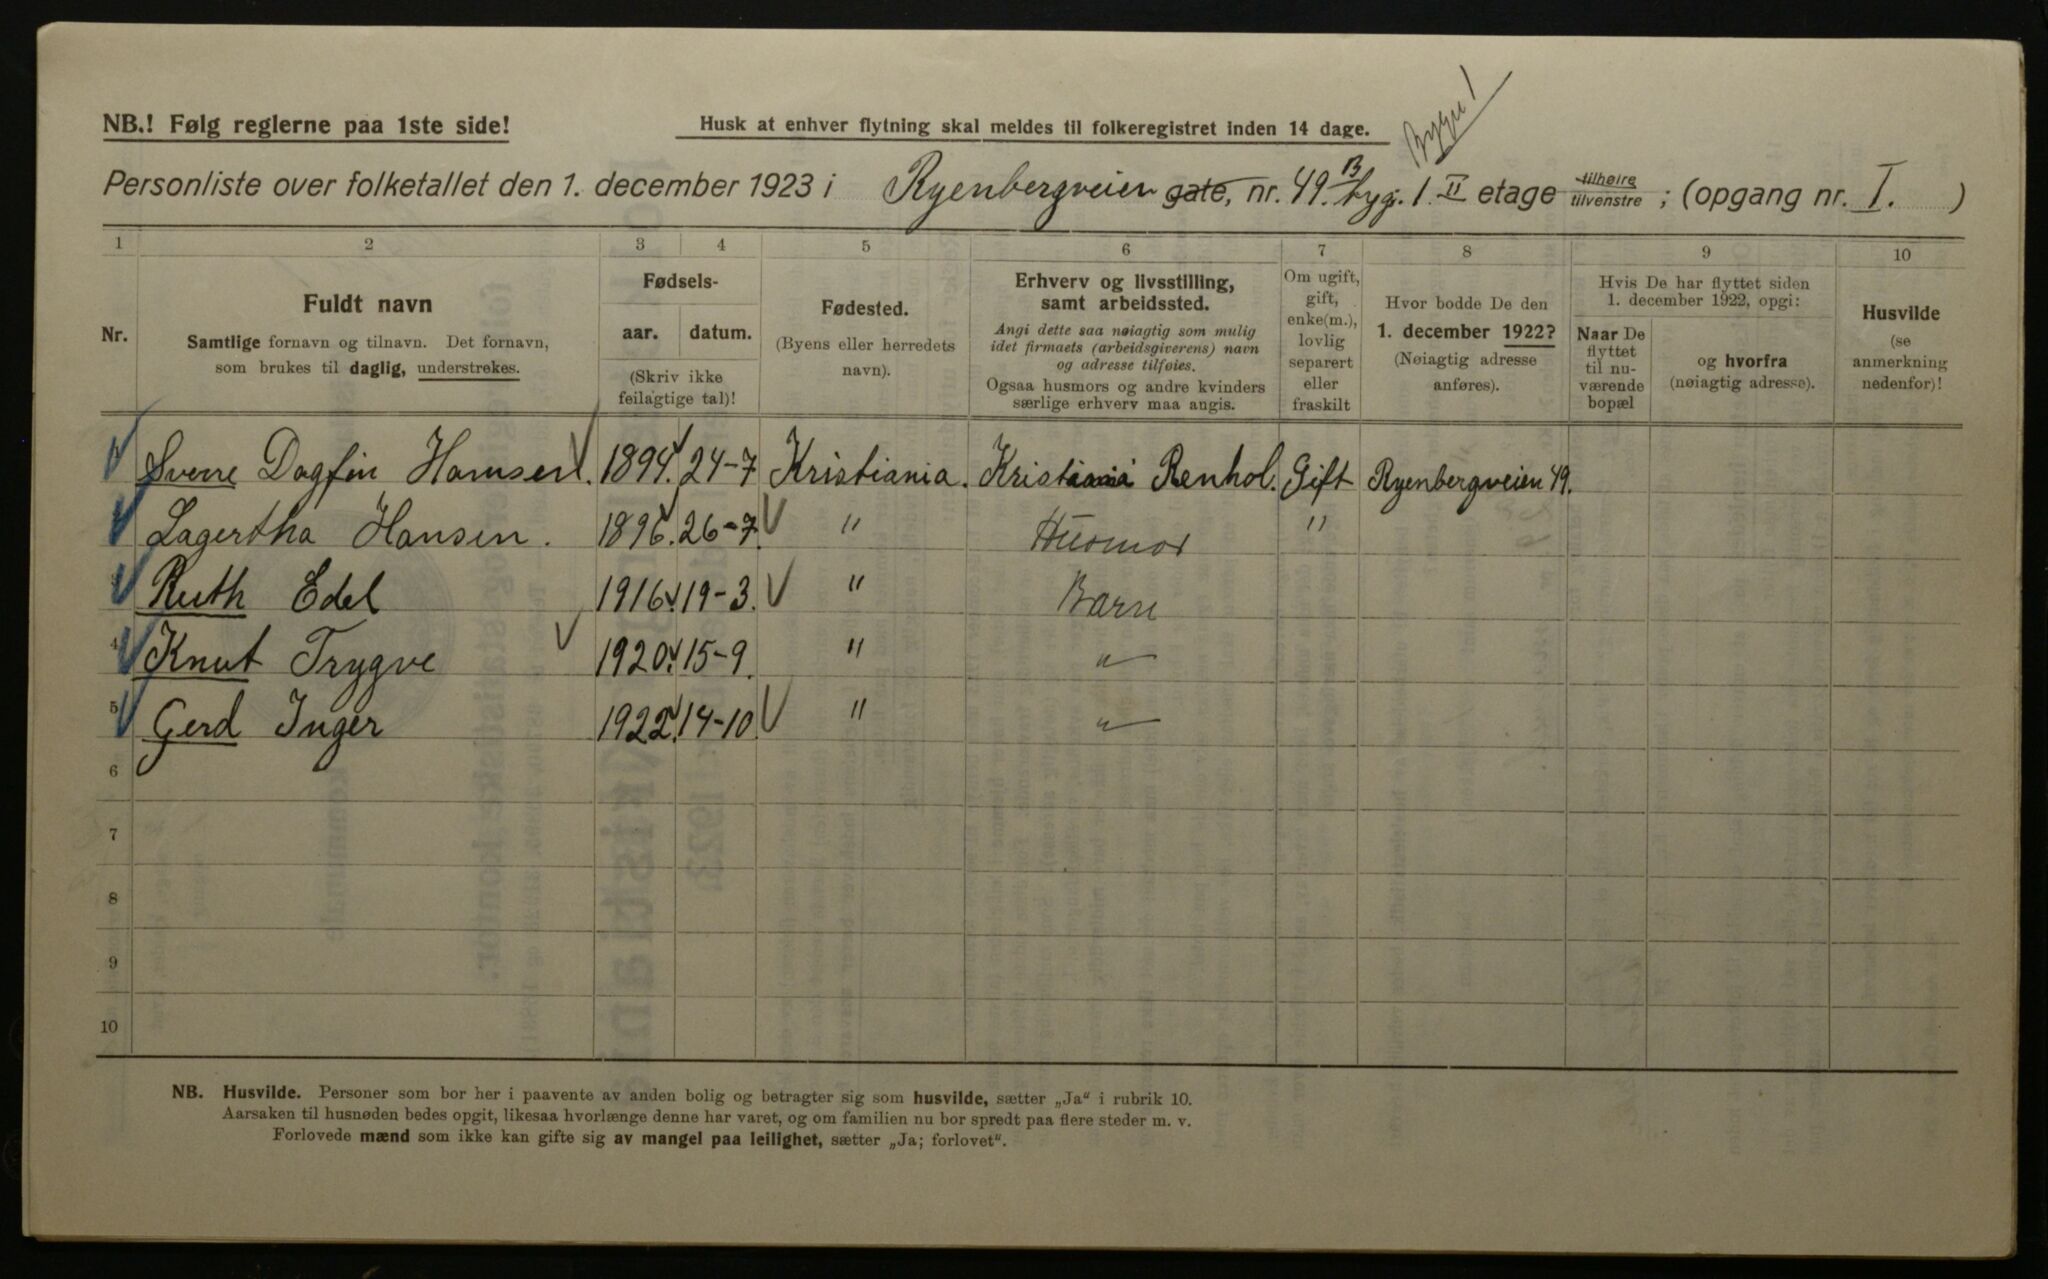 NB.! Følg reglerne paa 1ste side!
Husk at enhver flytning skal meldes til folkeregistret inden 14 dage.
Bygn 1
Personliste over folketallet den 1. december 1923 i Ryenbergveien gate, nr. 49. B byg. 1. II etage tilhøire tilvenstre ; (opgang nr. I. )
1 2 3 4 5 6 7 8 9 10
Nr.
Fuldt navn
Samtlige fornavn og tilnavn. Det fornavn,
som brukes til daglig, understrekes.
Fødsels-
aar. datum.
(Skriv ikke
feilagtige tal)!
Fødested.
(Byens eller herredets
navn).
Erhverv og livsstilling,
samt arbeidssted.
Angi dette saa nøiagtig som mulig
idet firmaets (arbeidsgiverens) navn
og adresse tilføies.
Ogsaa husmors og andre kvinders
særlige erhverv maa angis.
Om ugift,
gift,
enke(m.),
lovlig
separert
eller
fraskilt
Hvor bodde De den
1. december 1922?
(Nøiagtig adresse
anføres).
Hvis De har flyttet siden
1. december 1922, opgi:
Naar De
flyttet
til nu-
værende
bopæl
og hvorfra
(nøiagtig adresse).
Husvilde
(se
anmerkning
nedenfor)!
Sverre Dagfin Hansen. 1894. 24-7 Kristiania. Kristiania Renhol. Gift Ryenbergveien 49.
Lagertha Hansen. 1896. 26-7. " Husmor "
Ruth Edel 1916. 19-3. " Barn
4 Knut Trygve 1920. 15-9. " "
5 Gerd Inger 1922. 14-10. " "
6
7
8
9
10
NB. Husvilde. Personer som bor her i paavente av anden bolig og betragter sig som husvilde, sætter „Ja" i rubrik 10.
Aarsaken til husnøden bedes opgit, likesaa hvorlænge denne har varet, og om familien nu bor spredt paa flere steder m. v.
Forlovede mænd som ikke kan gifte sig av mangel paa leilighet, sætter „Ja; forlovet".